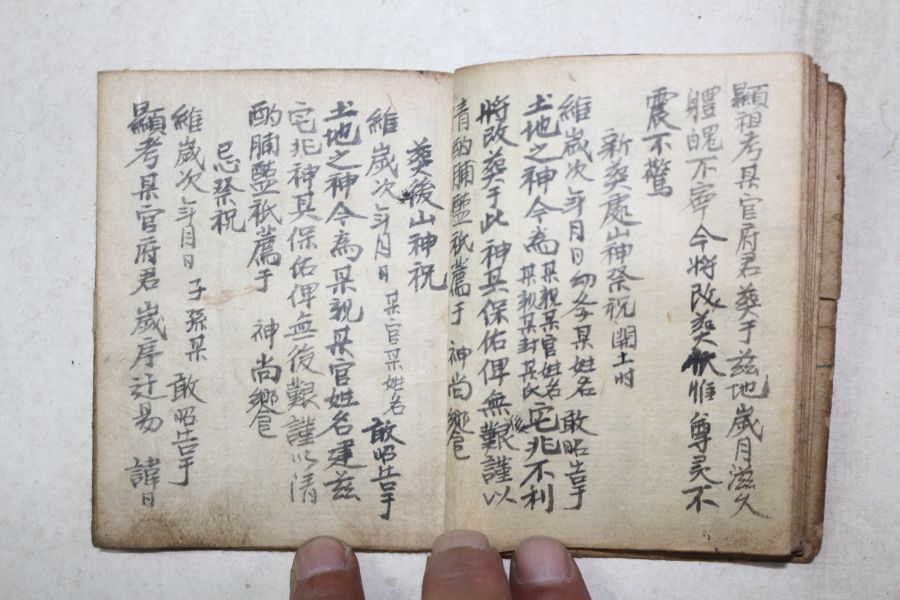 顯祖考某官府君葬于玆地歲月滋久
體魄不寧今將改葬伏惟尊灵不
震不驚
新葬處山神祭祝開土时
維歲次年月日幼學某姓名敢昭告于
土地之神今為某親某官姓名某親某封某氏宅兆不利
將改葬于此神其保佑俾無後艱謹以
清酌脯醢祇薦于神尚饗
葬後山神祝
維歲次年月日某官某姓名敢昭告于
土地之神今為某親某官姓名建玆
宅兆神其保佑俾無後艱謹以清
酌脯醢祇薦于神尚饗
忌祭祝
維歲次年月日子孫某敢昭告于
顯考某官府君歲序迁易諱日